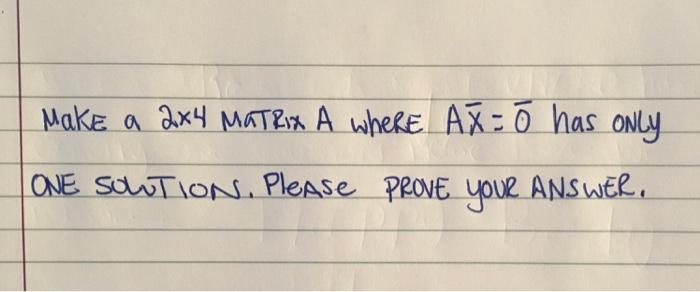 Make a 2x4 MATRix A wheRE Ax̄ = ō has ONLy
ONE SOLUTION. PleAse PROVE YOUR ANSWER.